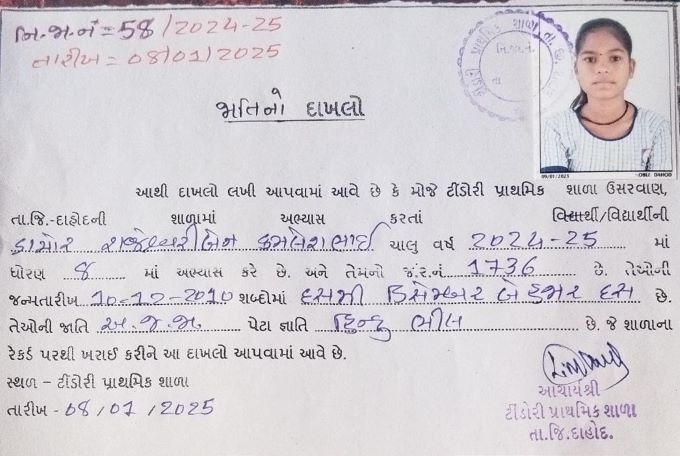 બિ.જા.નં = 58/2024-25
તારીખ = 08/01/2025
જાતિનો દાખલો
આથી દાખલો લખી આપવામાં આવે છે કે મોજે ટીંડોરી પ્રાથમિક શાળા ઉસરવાણ,
તા.જિ.-દાહોદની શાળામાં અભ્યાસ કરતાં વિદ્યાર્થી/વિદ્યાર્થીની
ડામોર રાજેશ્વરીબેન કમલેશભાઈ ચાલુ વર્ષ 2024-25 માં
ધોરણ 8 માં અભ્યાસ કરે છે. અને તેમનો જ.ર.નં. 1736 છે. તેઓની
જન્મતારીખ 10-12-2010 શબ્દોમાં દસમી ડિસેમ્બર બે હજાર દસ છે.
તેઓની જાતિ અ.જ.જા. પેટા જ્ઞાતિ હિન્દુ ભીલ છે. જે શાળાના
રેકર્ડ પરથી ખરાઈ કરીને આ દાખલો આપવામાં આવે છે.
સ્થળ - ટીંડોરી પ્રાથમિક શાળા
તારીખ - 08/01/2025
આચાર્યશ્રી
ટીંડોરી પ્રાથમિક શાળા
તા.જિ.દાહોદ.
09/01/2025